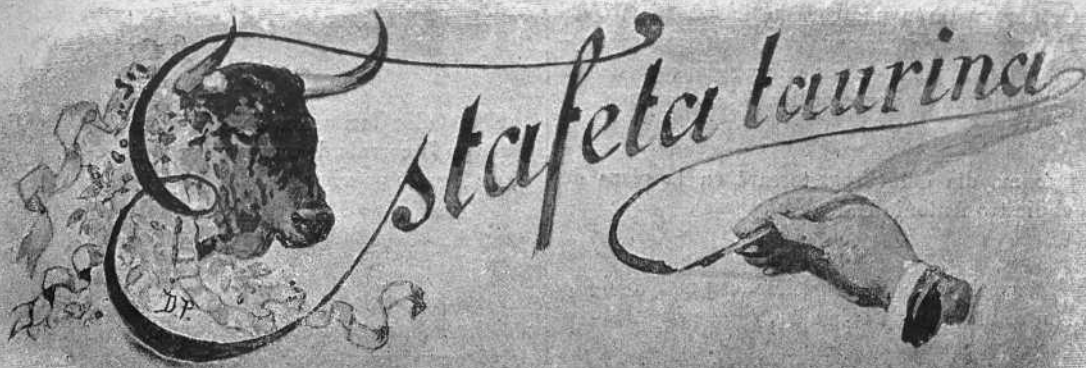 Estafeta taurina
D.P.